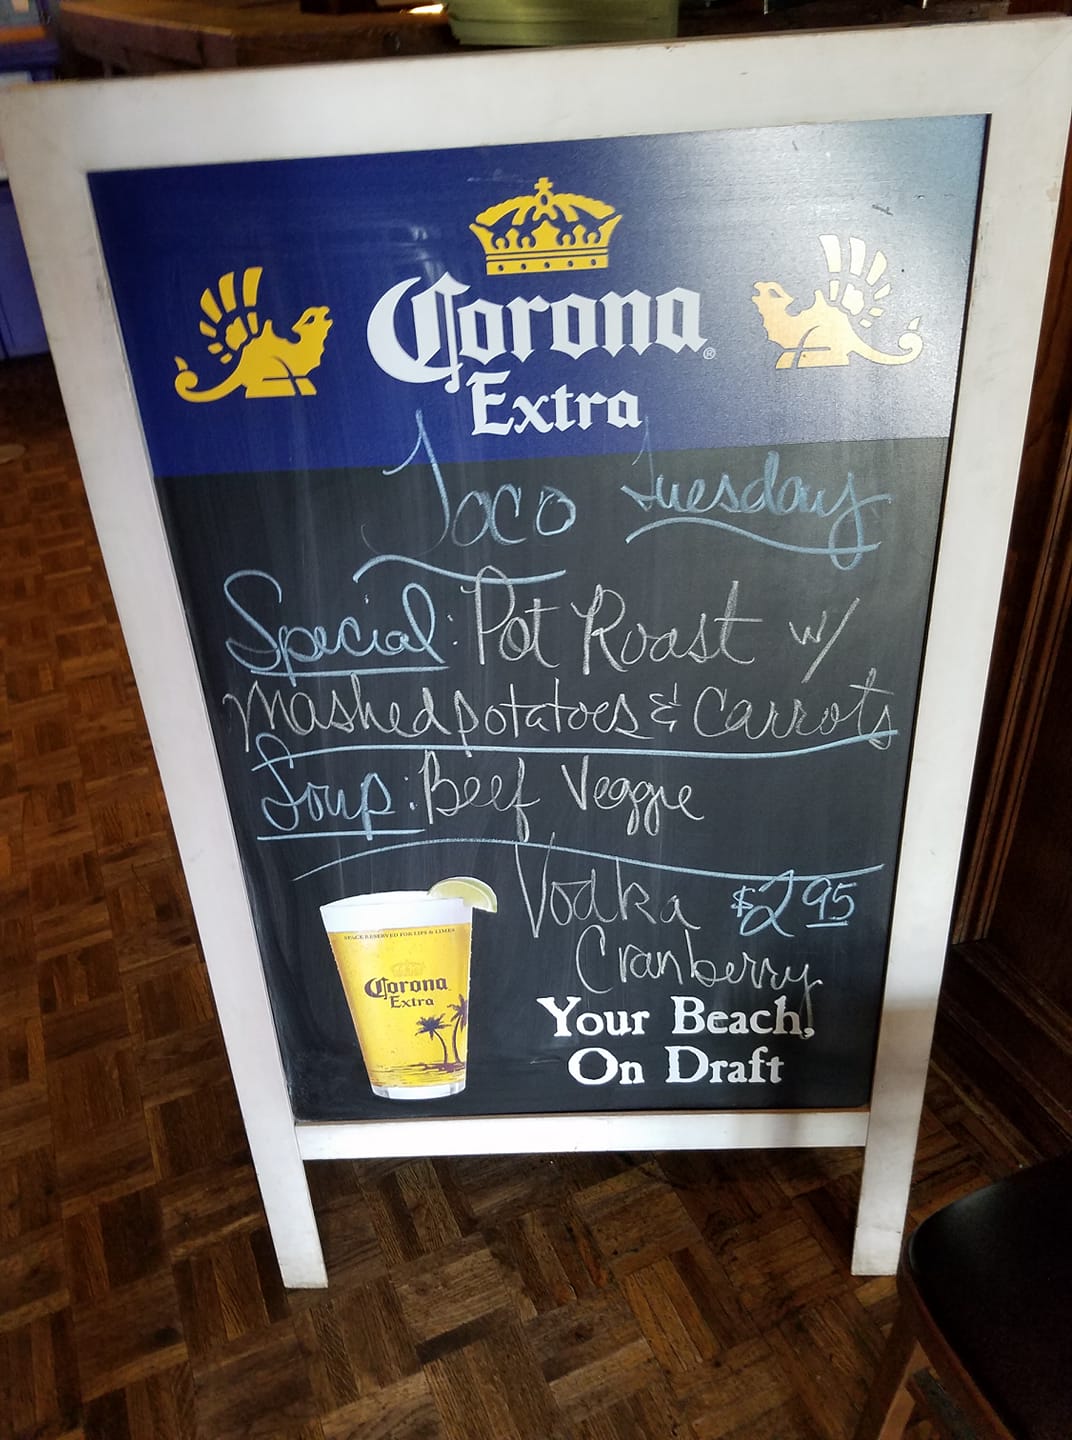 Corona®
Extra
Taco Tuesday
Special: Pot Roast w/
Mashed potatoes & Carrots
Soup: Beef Veggie
Vodka $2.95
Cranberry
SPACE RESERVED FOR LIPS & LIMES
Corona
Extra
Your Beach,
On Draft